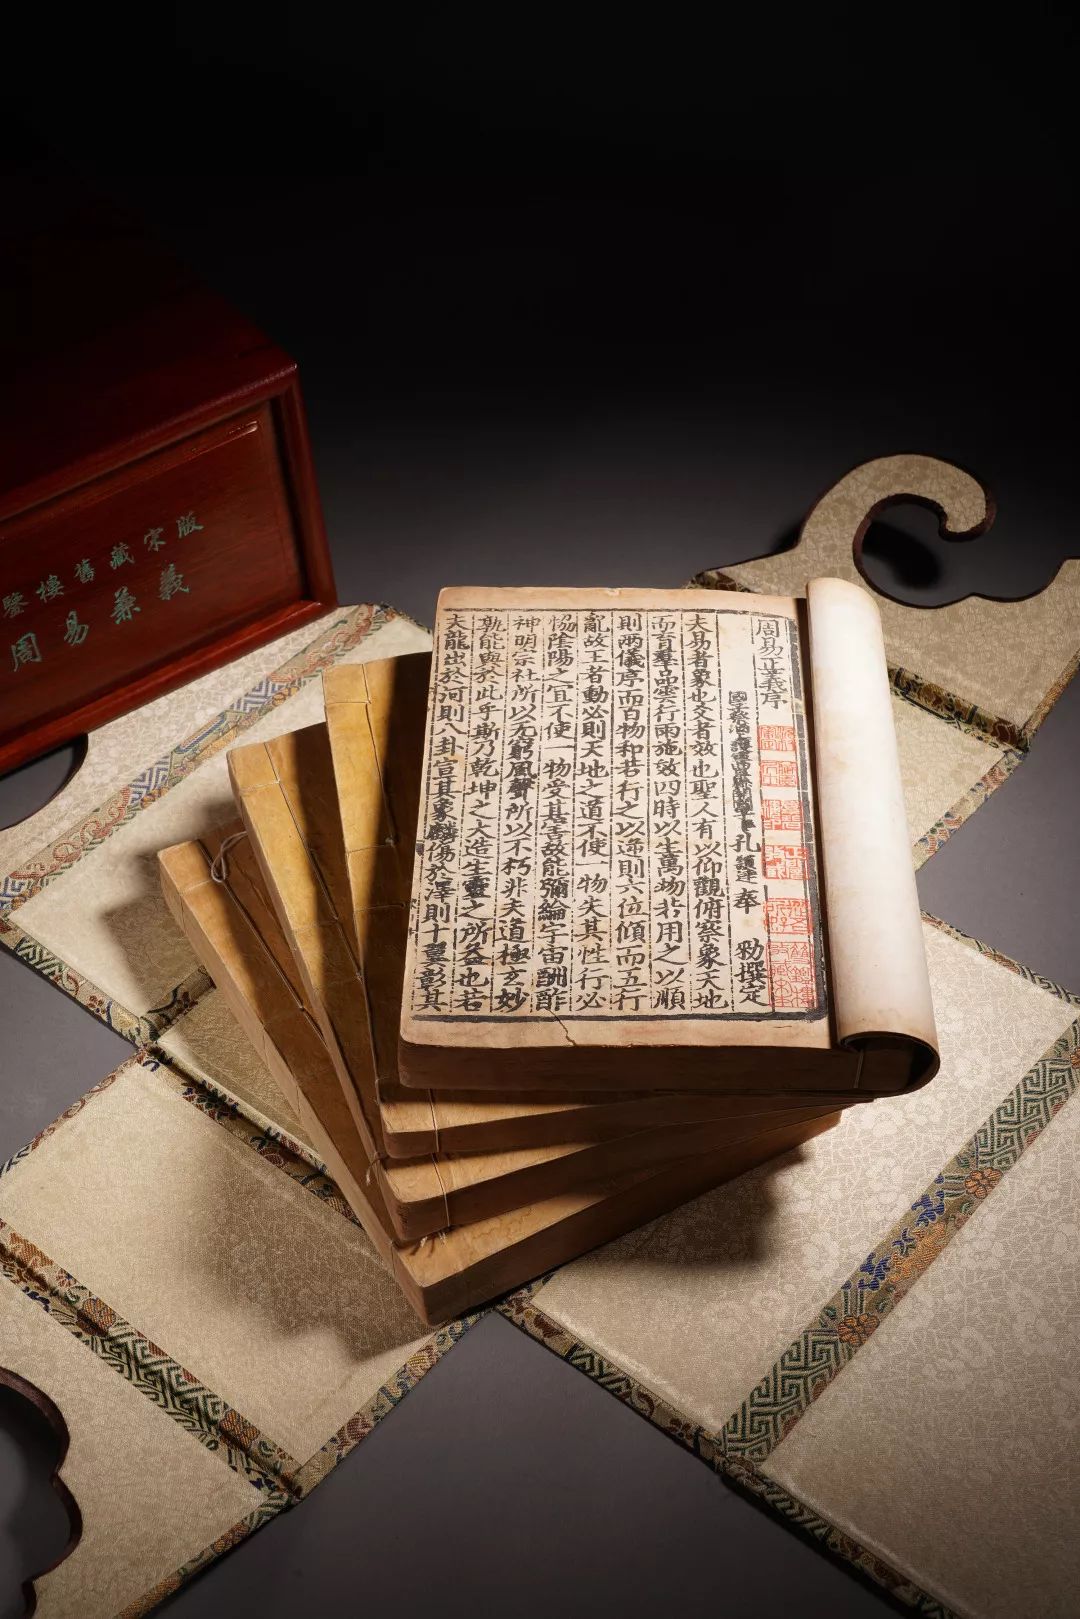 鑒樓舊藏宋版
周易兼義
周易正義序
國子祭酒上護軍曲阜縣開國子臣孔穎達奉 勑撰定
夫易者象也爻者效也聖人有以仰觀俯察象天地
而育羣品雲行雨施效四時以生萬物若用之以順
則兩儀序而百物和若行之以逆則六位傾而五行
亂故王者動必則天地之道不使一物失其性行必
恊隂陽之宜不使一物受其害故能彌綸宇宙酬酢
神明宗社所以无窮風聲所以不朽非夫道極玄妙
孰能與於此乎斯乃乾坤之大造生靈之所益也若
夫龍出於河則八卦宣其象麟傷於澤則十翼彰其